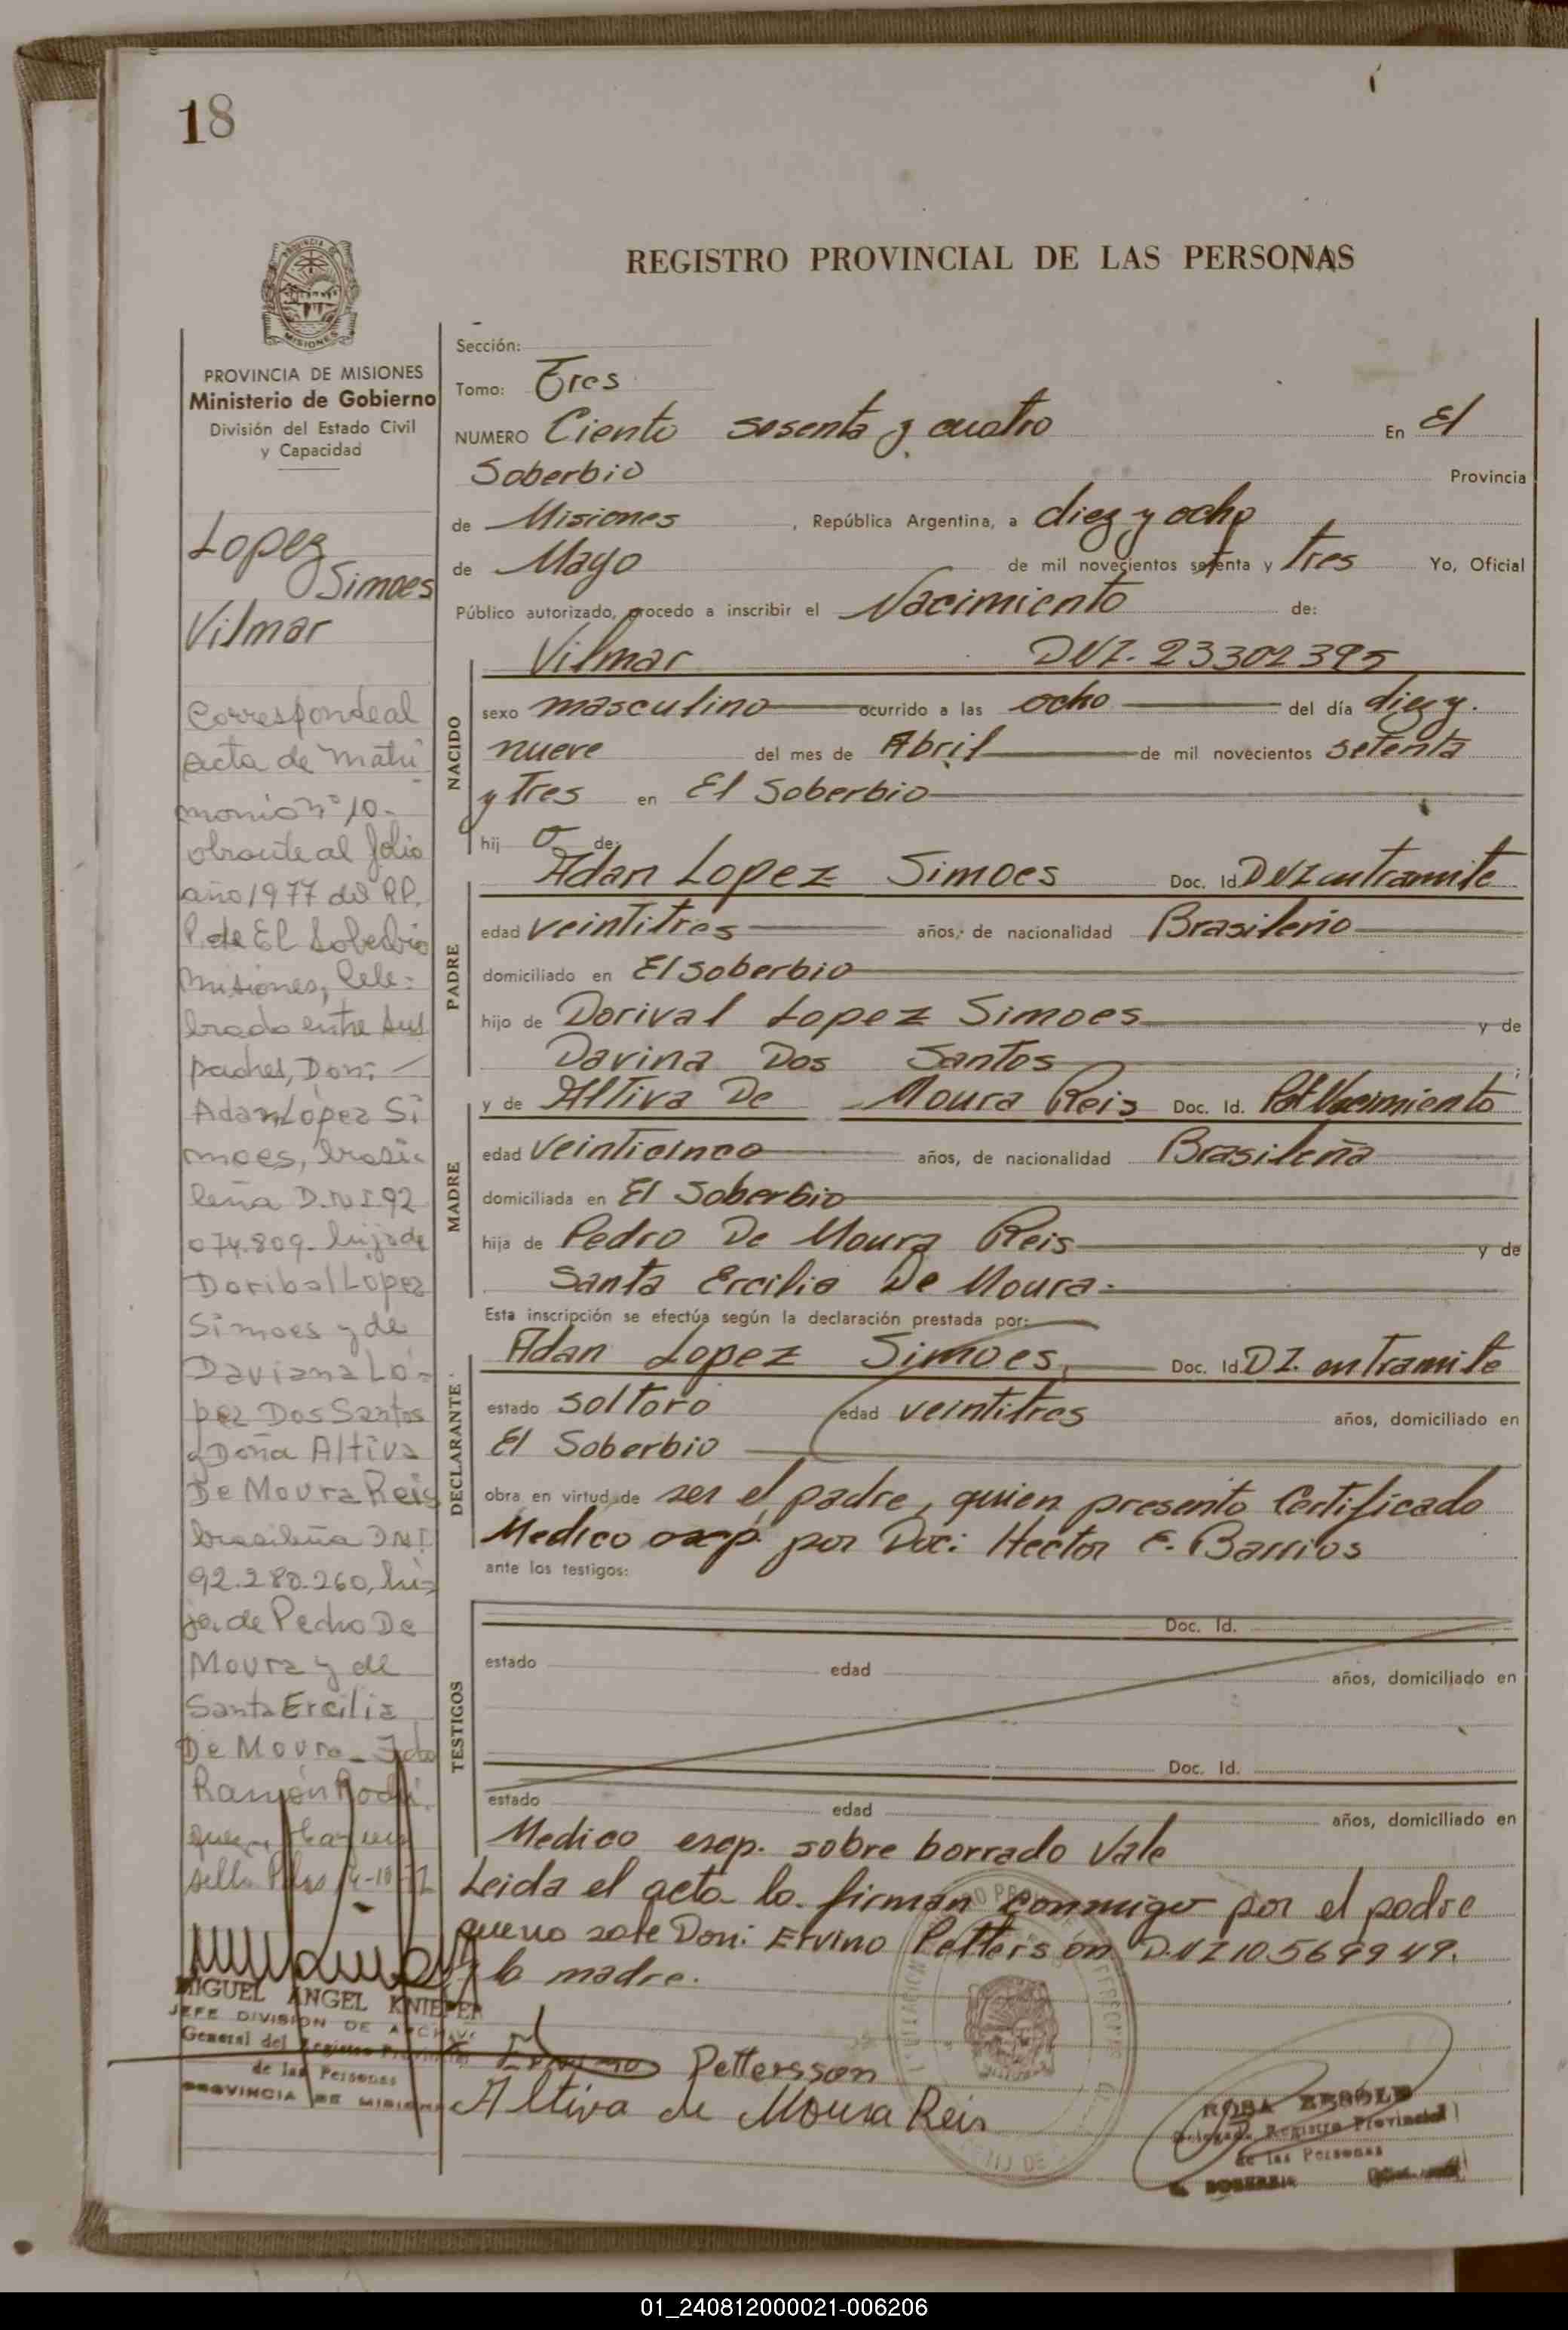 18
REGISTRO PROVINCIAL DE LAS PERSONAS
MISIONES
PROVINCIA DE MISIONES
Ministerio de Gobierno
División del Estado Civil
y Capacidad
Lopez
Simoes
Vilmar
Corresponde al
acta de matri
monio nº 10-
obrante al folio
año 1977 del R.P.
P. de El Soberbio
Misiones, Cele=
brado entre sus
padres, Don:
Adan López Si
moes, brasi-
leña D.N.I. 92
074.809- hijo de
Doribal López
Simoes y de
Daviana Ló=
pez Dos Santos
y Doña Altiva
De Moura Reis
brasileña DNI
92.280.260, hi=
ja de Pedro De
Moura y de
Santa Ercilia
De Moura_
Ramón Rodri
MIGUEL ANGEL KNIEPER
JEFE DIVISION DE ARCHIVO
General del Registro Provincial
de las Personas
PROVINCIA DE MISIONES
Sección:
Tomo: Tres
NUMERO Ciento sesenta y cuatro En El
Soberbio Provincia
de Misiones, República Argentina, a diez y ocho
de Mayo de mil novecientos setenta y tres Yo, Oficial
Público autorizado, procedo a inscribir el Nacimiento de:
NACIDO
Vilmar DNI. 23302395
sexo masculino ocurrido a las ocho del día diez y.
nueve del mes de Abril de mil novecientos setenta
y Tres en El Soberbio
hij o de:
PADRE
Adan Lopez Simoes Doc. Id. DNI en tramite
edad veintitres años, de nacionalidad Brasileño
domiciliado en El soberbio
hijo de Dorival Lopez Simoes y de
Davina Dos Santos
MADRE
y de Altiva De Moura Reis Doc. Id. Part Nacimiento
edad veinticinco años, de nacionalidad Brasileña
domiciliada en El Soberbio
hija de Pedro De Moura Reis y de
Santa Ercilia De Moura.
Esta inscripción se efectúa según la declaración prestada por:
DECLARANTE
Adan Lopez Simoes, Doc. Id. D I. en Tramite
estado soltero edad veintitres años, domiciliado en
El Soberbio
obra en virtud de ser el padre, quien presento Certificado
Medico exp. por Doc: Hector E. Barrios
ante los testigos:
TESTIGOS
Doc. Id.
estado edad años, domiciliado en
Doc. Id.
estado edad años, domiciliado en
Medico exp. sobre borrado Vale
Leida el acta la firman conmigo por el padre
que no sabe Don: Ervino Petterson D.N.I 10.569949.
y la madre.
Ervino Pettersson
Altiva de Moura Reis
Delegada Registro Provincial
de las Personas
SOBERBIO
01_240812000021-006206